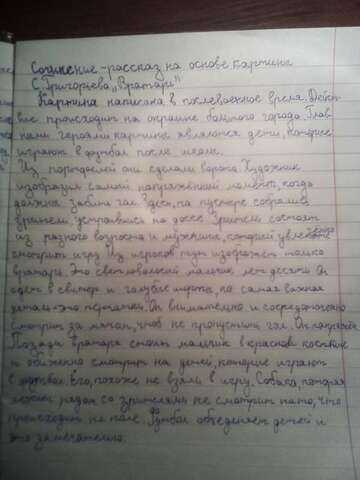 Сочинение-рассказ на основе картины
С. Григорьева „Вратарь"
Картина написана в послевоенное время. Дейст-
вие происходит на окраине большого города. Глав-
ными героями картины являются дети, которые
играют в футбол после школы.
Из портфелей они сделали ворота. Художник
изобразил самый напряжённый момент, когда
должны забить гол. Здесь, на пустыре собрались
зрители, устроившись на доске. Зрители состоят
из разного возраста и мужчина, который увлечённо
смотрит игру. Из игроков тут изображён только
вратарь. Это светловолосый мальчик лет десяти. Он
одет в свитер и голубые шорты, но самая важная
деталь-это перчатки. Он внимательно и сосредоточенно
смотрит за мячом, чтоб не пропустить гол. Он напряжён.
Позади вратаря стоит мальчик в красном костюме
и обиженно смотрит на детей, которые играют
в футбол. Его, похоже не взяли в игру. Собака, которая
лежит рядом со зрителями не смотрит на то, что
происходит на поле. Футбол объединяет детей и
это замечательно.